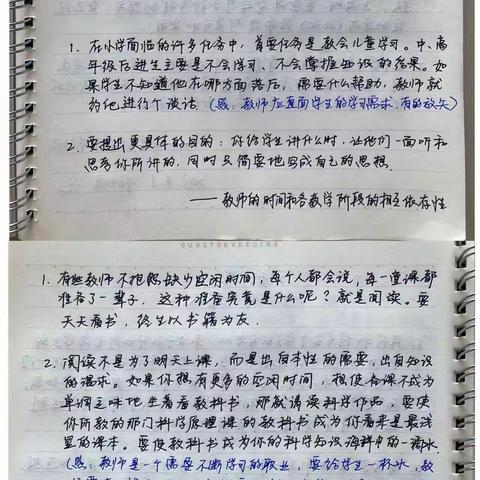 1. 在小学面临的许多任务中，首要任务是教会儿童学习。中、高
年级后进生主要是不会学习、不会掌握知识的结果。如
果学生不知道他在哪方面落后，需要什么帮助，教师就
约他进行个谈话（感：教师应直面学生的学习需求，有的放矢）
2. 要提出更具体的目的：你给学生讲什么时，让他们一面听和
思考你所讲的，同时又简要地写成自己的思想.
——教师的时间和各教学阶段的相互依存性
OURSTORYBEGINS
1. 有些教师不抱怨缺少空闲时间，每个人都会说，每一堂课都
准备了一辈子. 这种准备究竟是什么呢？就是阅读。要
天天看书，终生以书籍为友.
2. 阅读不是为了明天上课，而是出自本性的需要，出自知识
的渴求。如果你想有更多的空闲时间，想使备课不成为
单调乏味地坐着看教科书，那就请读科学作品，要使
你所教的那门科学原理课的教科书成为你看来是最浅
显的课本。要使教科书成为你的科学知识海洋中的一滴水.
（感：教师是一个需要不断学习的职业，要给学生一杯水，教